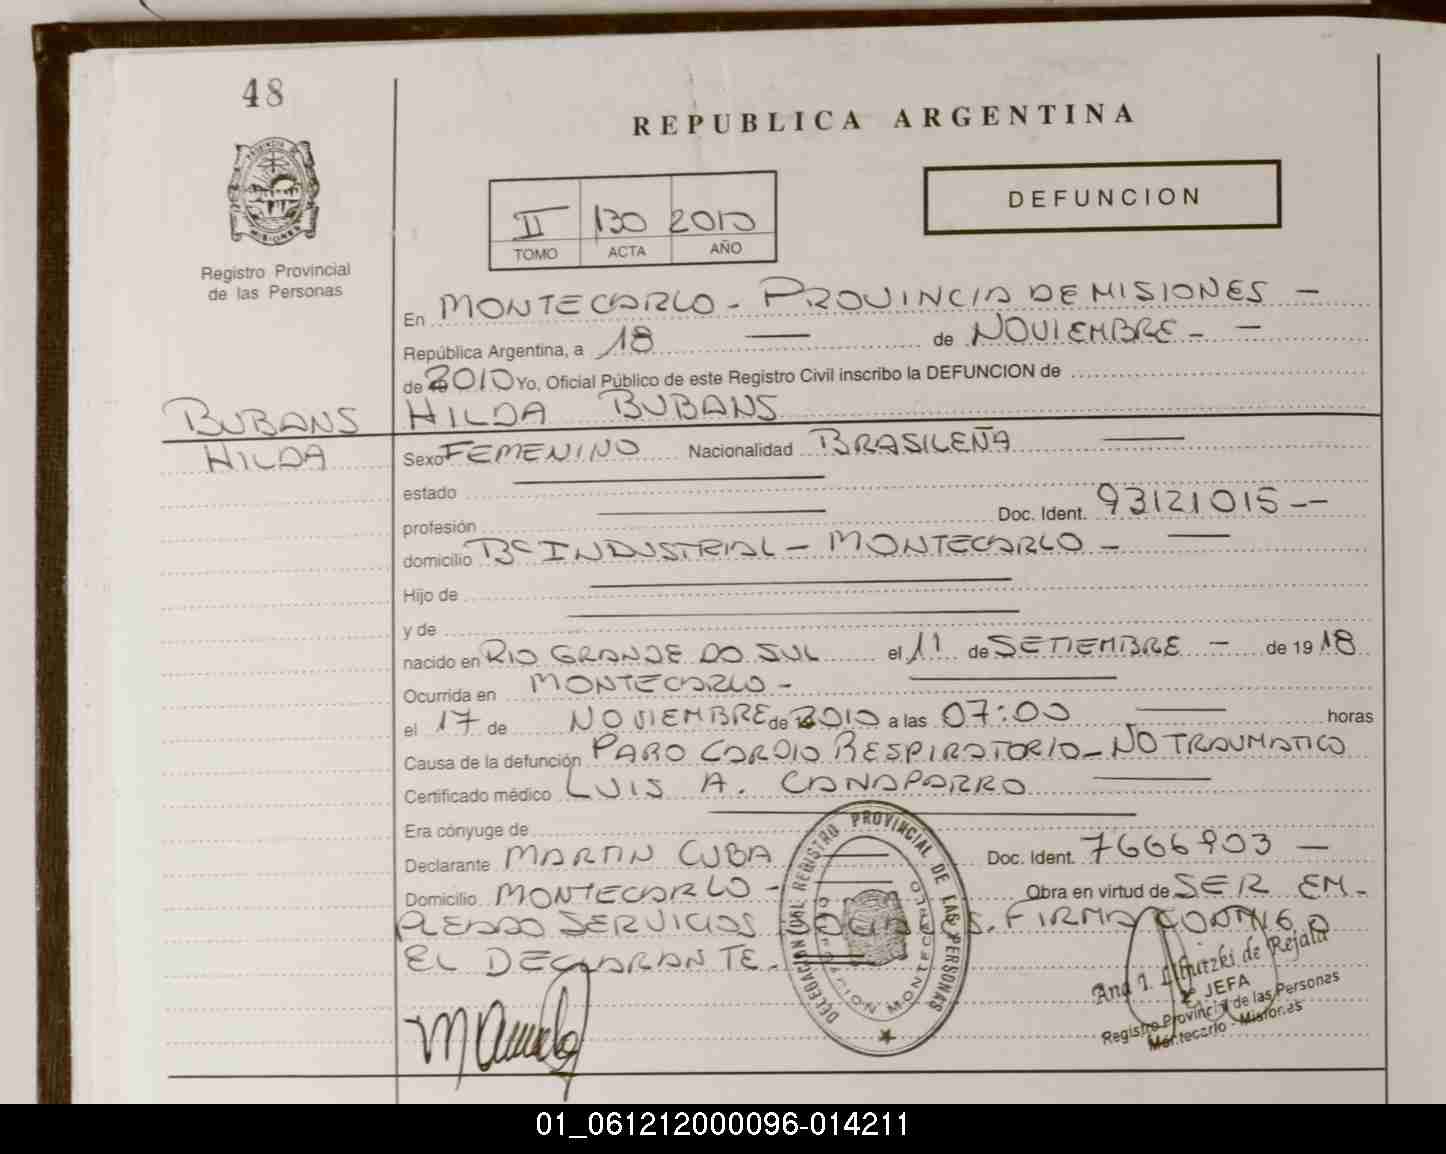 48
REPUBLICA ARGENTINA
PROVINCIA
MISIONES
Registro Provincial
de las Personas
DEFUNCION
II 130 2010
TOMO ACTA AÑO
En MONTECARLO - PROVINCIA DE MISIONES -
República Argentina, a 18 de NOVIEMBRE -
de 2010 Yo, Oficial Público de este Registro Civil inscribo la DEFUNCION de
HILDA BUBANS
BUBANS
HILDA
Sexo FEMENINO Nacionalidad BRASILEÑA
estado
profesión Doc. Ident. 93121015 --
domicilio Bº INDUSTRIAL - MONTECARLO -
Hijo de
y de
nacido en RIO GRANDE DO SUL el 11 de SETIEMBRE - de 1918
Ocurrida en MONTECARLO -
el 17 de NOVIEMBRE de 2010 a las 07:00 horas
Causa de la defunción PARO CARDIO RESPIRATORIO - NO TRAUMATICO
Certificado médico LUIS A. CANAPARRO
Era cónyuge de
Declarante MARTIN CUBA Doc. Ident. 7666903 -
Domicilio MONTECARLO - Obra en virtud de SER EM-
PLEADO SERVICIOS SOCIALES. FIRMA CONMIGO
EL DECLARANTE.
DELEGACION DEL REGISTRO PROVINCIAL DE LAS PERSONAS
MONTECARLO
Ana I. de Rejala
JEFA
Registro Provincial de las Personas
Montecarlo - Misiones
01_061212000096-014211